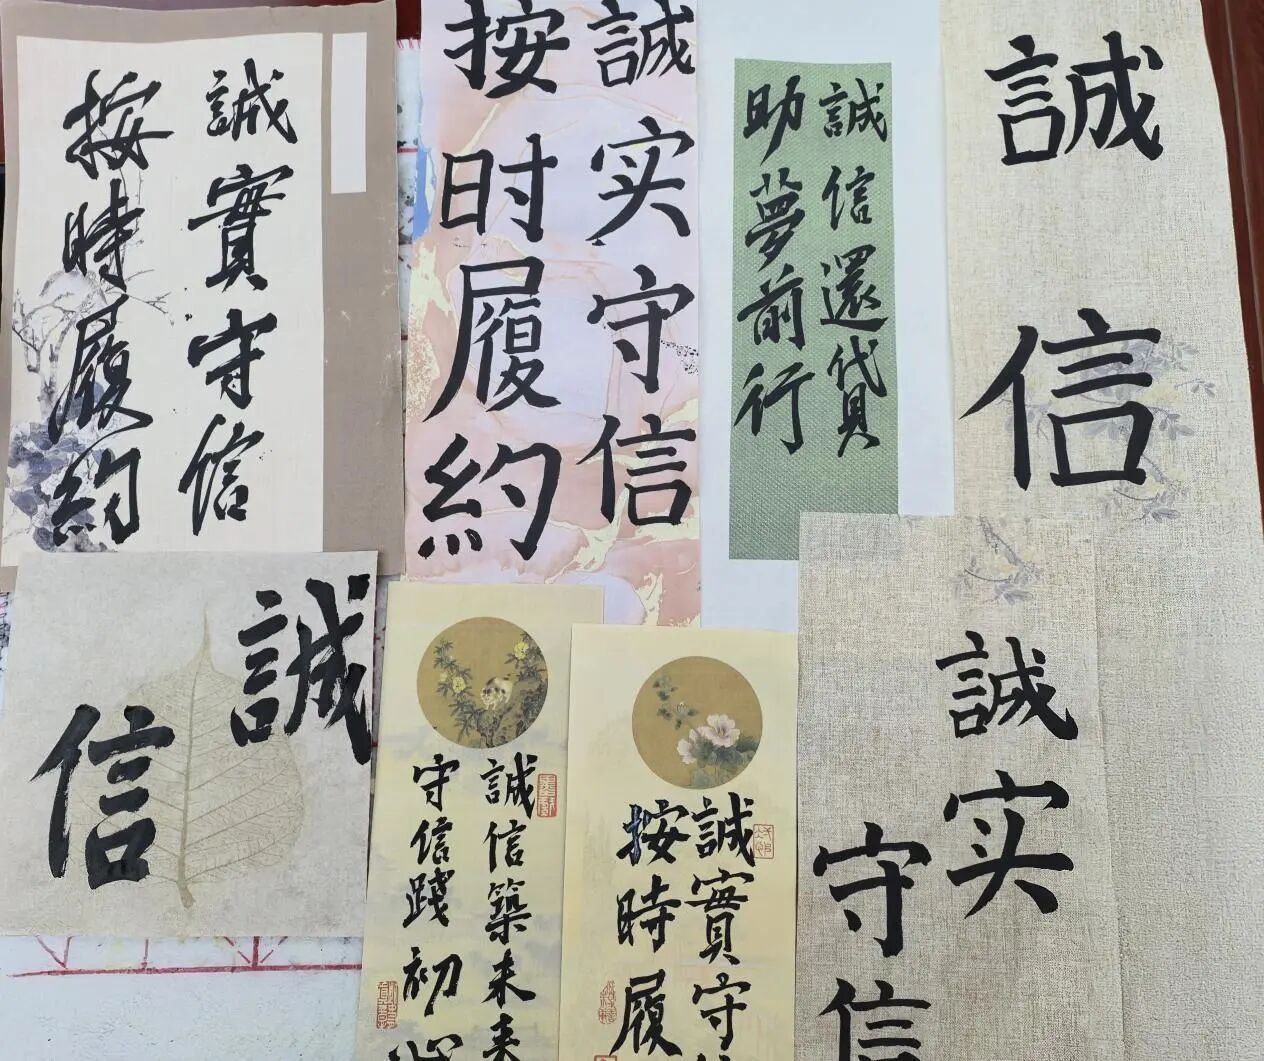 誠實守信
按時履約
誠实守信
按时履約
誠信還貸
助夢前行
誠信
誠
信
誠信築未来
守信踐初心
誠實守信
按時履
誠实
守信